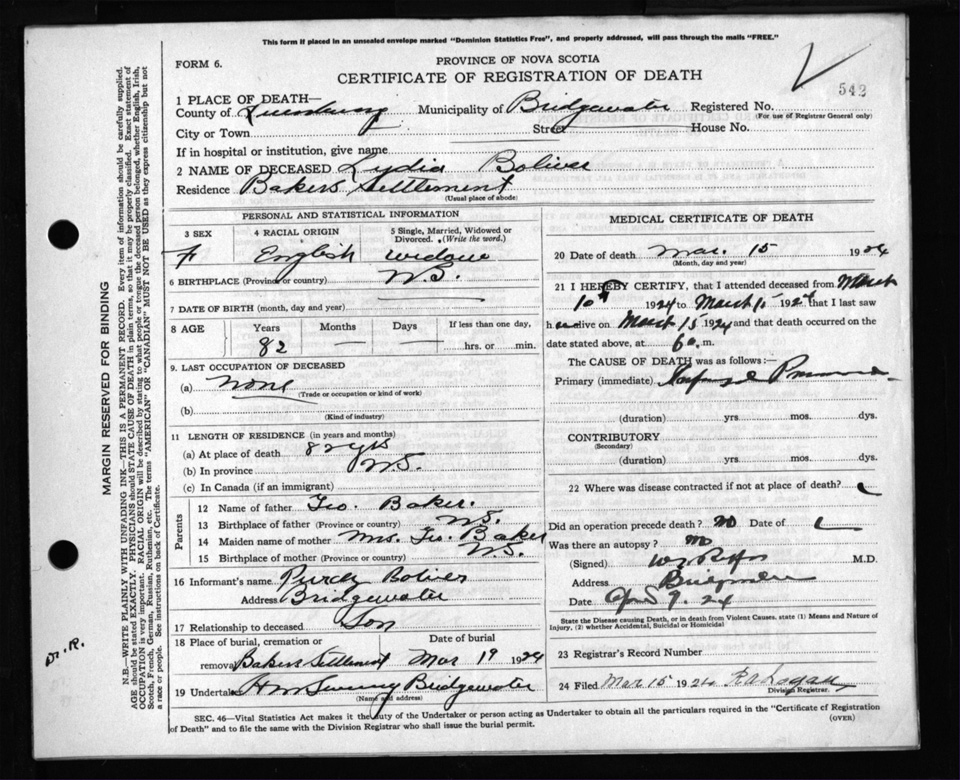 This form if placed in an unsealed envelope marked "Dominion Statistics Free", and properly addressed, will pass through the mails "FREE."
FORM 6.
PROVINCE OF NOVA SCOTIA
CERTIFICATE OF REGISTRATION OF DEATH
542
1 PLACE OF DEATH—
County of Lunenburg Municipality of Bridgewater Registered No.
(For use of Registrar General only)
City or Town Street House No.
If in hospital or institution, give name
2 NAME OF DECEASED Lydia Boliver
Residence Bakers Settlement
(Usual place of abode)
PERSONAL AND STATISTICAL INFORMATION
3 SEX 4 RACIAL ORIGIN 5 Single, Married, Widowed or Divorced. (Write the word.)
F English widow
6 BIRTHPLACE (Province or country) N.S.
7 DATE OF BIRTH (month, day and year)
8 AGE Years Months Days If less than one day,
82 — — hrs. or min.
9. LAST OCCUPATION OF DECEASED
(a) None
(Trade or occupation or kind of work)
(b)
(Kind of industry)
11 LENGTH OF RESIDENCE (in years and months)
(a) At place of death 82 yrs
(b) In province N.S.
(c) In Canada (if an immigrant)
Parents
12 Name of father Geo. Baker.
13 Birthplace of father (Province or country) N.S.
14 Maiden name of mother Mrs. Geo. Baker
15 Birthplace of Mother (Province or Country) N.S.
16 Informant's name Boliver
Address Bridgewater
17 Relationship to deceased Son
18 Place of burial, cremation or removal Date of burial
Bakers Settlement Mar 19 1924
19 Undertaker Bridgewater
(Name and address)
MEDICAL CERTIFICATE OF DEATH
20 Date of death Mar. 15 1924
(Month, day and year)
21 I HEREBY CERTIFY, that I attended deceased from March
10th 1924 to March 15 1924 that I last saw
h er alive on March 15 1924 and that death occurred on
date stated above, at 6 m.
The CAUSE OF DEATH was as follows:—
Primary (immediate)
(duration) yrs. mos. dys.
CONTRIBUTORY
(Secondary)
(duration) yrs. mos. dys.
22 Where was disease contracted if not at place of death?
Did an operation precede death? No Date of
Was there an autopsy? No
(Signed) M.D.
Address
Date 9. 24
State the Disease causing Death, or in death from Violent Causes, state (1) Means and Nature of Injury, (2) whether Accidental, Suicidal or Homicidal
23 Registrar's Record Number
24 Filed Mar 15 1924
Division Registrar.
SEC. 46—Vital Statistics Act makes it the duty of the Undertaker or person acting as Undertaker to obtain all the particulars required in the "Certificate of Registration
of Death" and to file the same with the Division Registrar who shall issue the burial permit. (OVER)
MARGIN RESERVED FOR BINDING
N.B.—WRITE PLAINLY WITH UNFADING INK—THIS IS A PERMANENT RECORD. Every item of information should be carefully supplied.
AGE should be stated EXACTLY. PHYSICIANS should STATE CAUSE OF DEATH in plain terms, so that it may be properly classified. Exact statement of
OCCUPATION is very important. RACIAL ORIGIN will be described by stating to what people or tongue the deceased person belonged, whether English, Irish,
Scotch, French, German, Russian, Ruthenian, etc. The terms "AMERICAN" OR "CANADIAN" MUST NOT BE USED as they express citizenship but not
a race or people. See instructions on back of Certificate.
Dr. R.